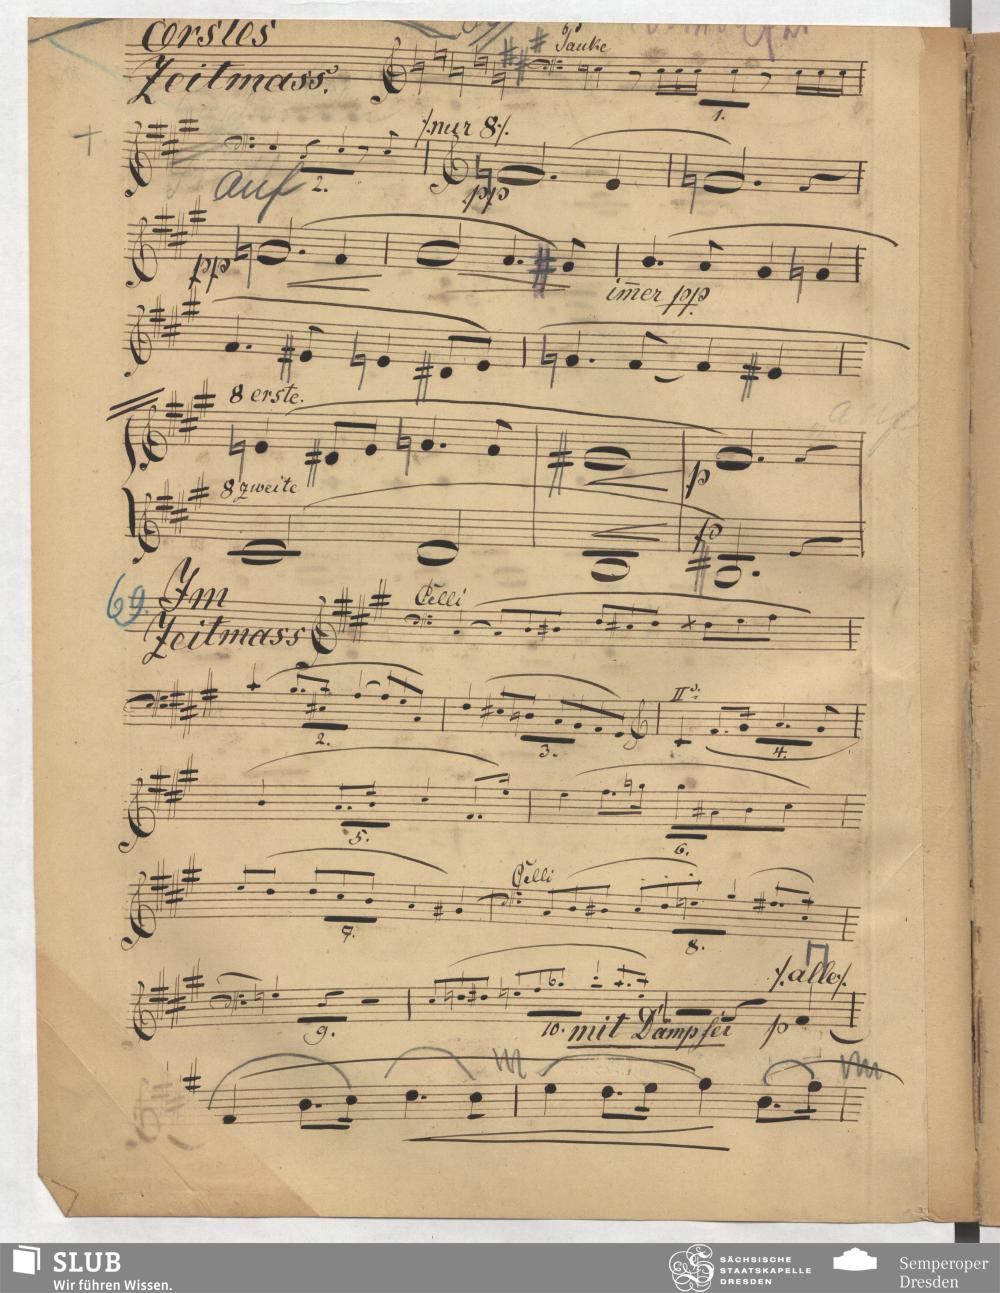 Erstes
Zeitmass.
Pauke
1.
auf
2.
/.nur 8/.
pp
pp
im̄er pp
8 erste.
p
8 zweite
p
69.
Im
Zeitmass
Celli
2.
3.
IIª:
4.
5.
6.
7.
Celli
8.
9.
10.
mit Dämpfer
p
/.alle/.
SLUB
Wir führen Wissen.
SÄCHSISCHE
STAATSKAPELLE
DRESDEN
Semperoper
Dresden